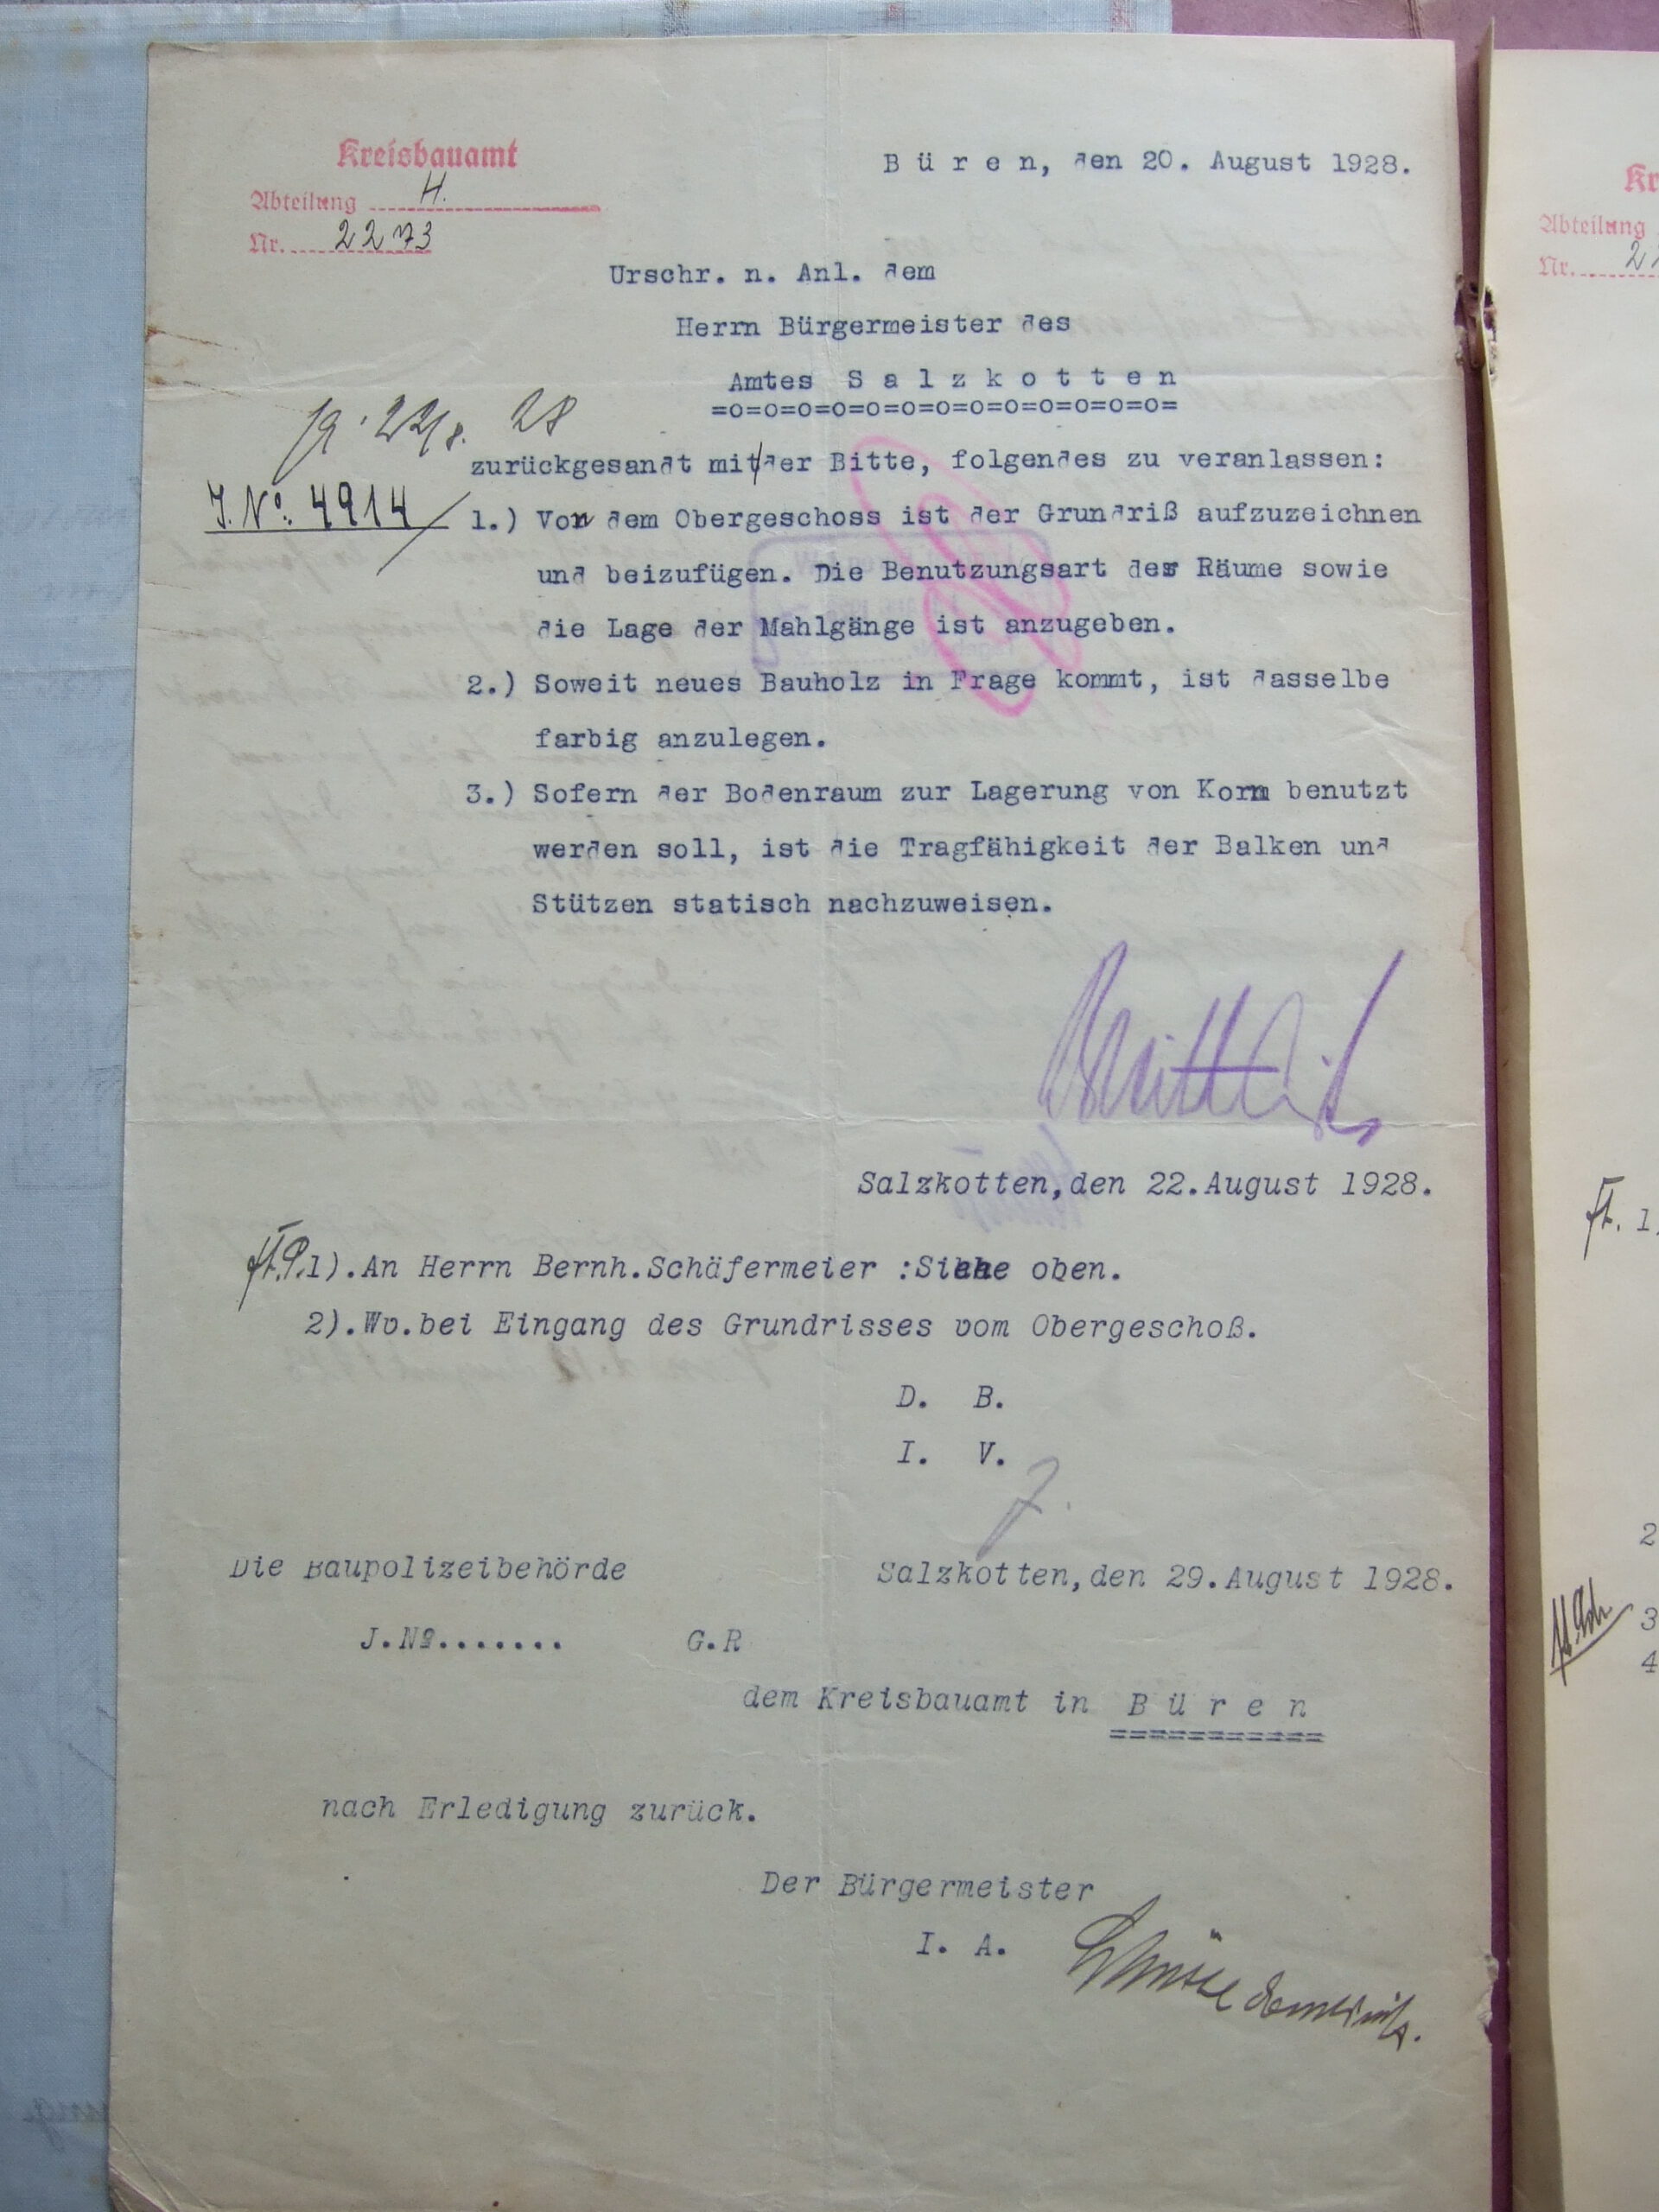 Kreisbauamt
Abteilung H.
Nr. 2273
Büren, den 20. August 1928.
Urschr. n. Anl. dem
Herrn Bürgermeister des
Amtes Salzkotten
=o=o=o=o=o=o=o=o=o=o=o=o=o=
22/8. 28
J. No. 4914
zurückgesandt mit der Bitte, folgendes zu veranlassen:
1.) Von dem Obergeschoss ist der Grundriß aufzuzeichnen
und beizufügen. Die Benutzungsart der Räume sowie
die Lage der Mahlgänge ist anzugeben.
2.) Soweit neues Bauholz in Frage kommt, ist dasselbe
farbig anzulegen.
3.) Sofern der Bodenraum zur Lagerung von Korn benutzt
werden soll, ist die Tragfähigkeit der Balken und
Stützen statisch nachzuweisen.
Salzkotten, den 22. August 1928.
1). An Herrn Bernh. Schäfermeier : Siehe oben.
2). Wv. bei Eingang des Grundrisses vom Obergeschoß.
D. B.
I. V.
Die Baupolizeibehörde
Salzkotten, den 29. August 1928.
J. No.......
G.R
dem Kreisbauamt in Büren
===========
nach Erledigung zurück.
Der Bürgermeister
I. A.
Kr
Abteilung
Nr.
1
2
3
4